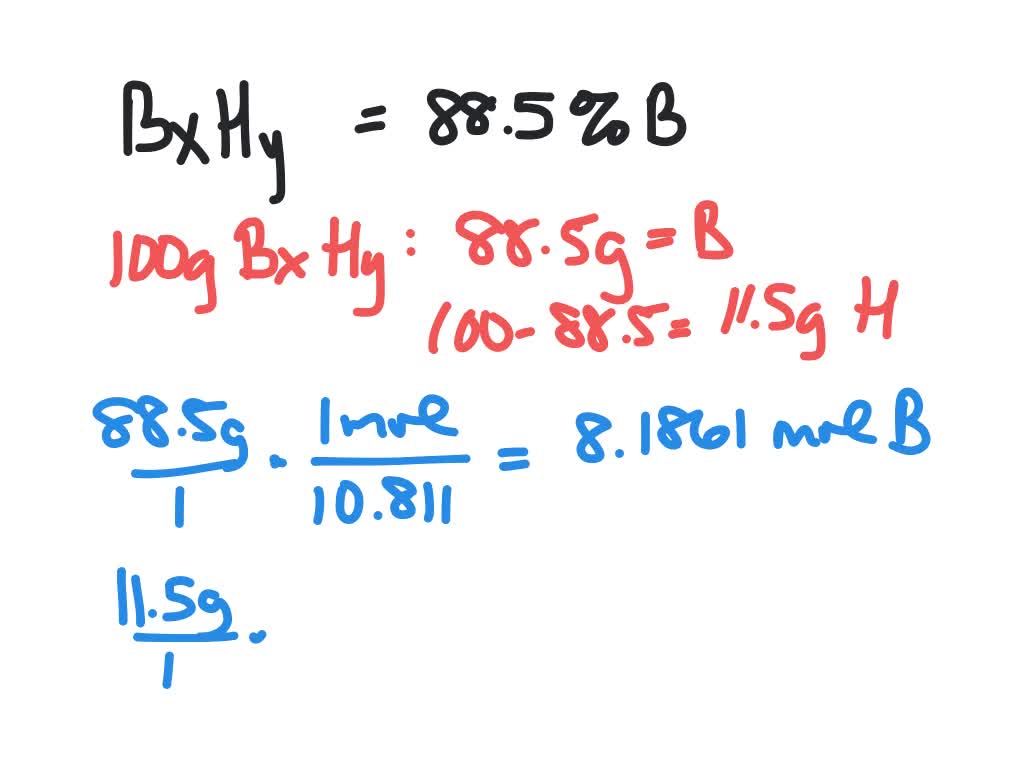 BxHy = 88.5% B
100g BxHy: 88.5g = B
100-88.5 = 11.5g H
88.5g/1 · 1 mole/10.811 = 8.1861 mole B
11.5g/1 ·